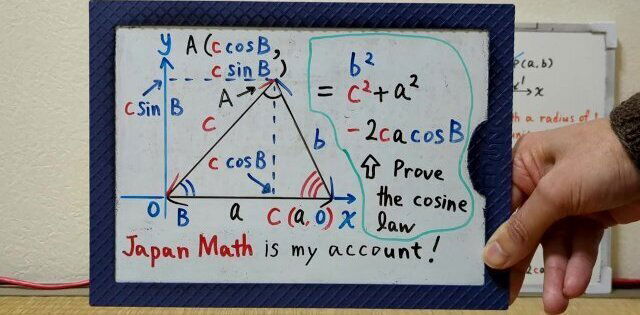 y A(c cos B,
c sin B)
c sin B
A
c
b
c cos B
O B a C(a, 0) x
b²
= c² + a²
- 2ca cos B
⇧ Prove
the cosine
law
Japan Math is my account!
P(a, b)
x
th a radius of 1